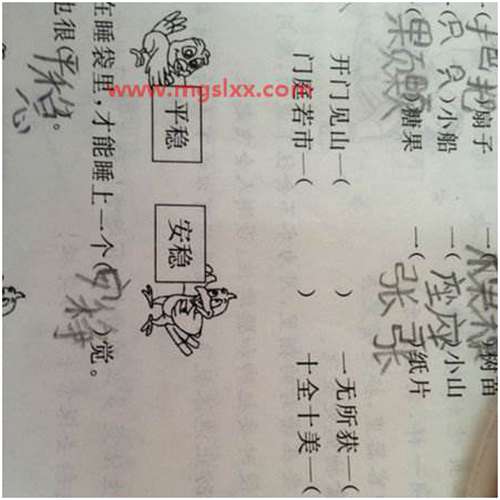 (把)扇子 一(棵棵)树苗
(只只)小船 一(座座)小山
)糖果 一(张张)纸片
开门见山—( ) 一无所获—(
门庭若市—( ) 十全十美—(
www.mgslxx.com
平稳 安稳
在睡袋里，才能睡上一个(安稳)觉。
也很(平稳)。